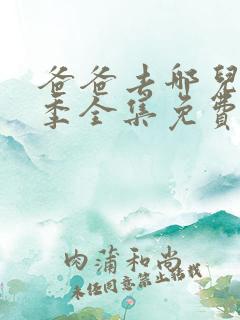 爸爸去哪兒
季全集免費
肉蒲和尚
未经同意禁止转载